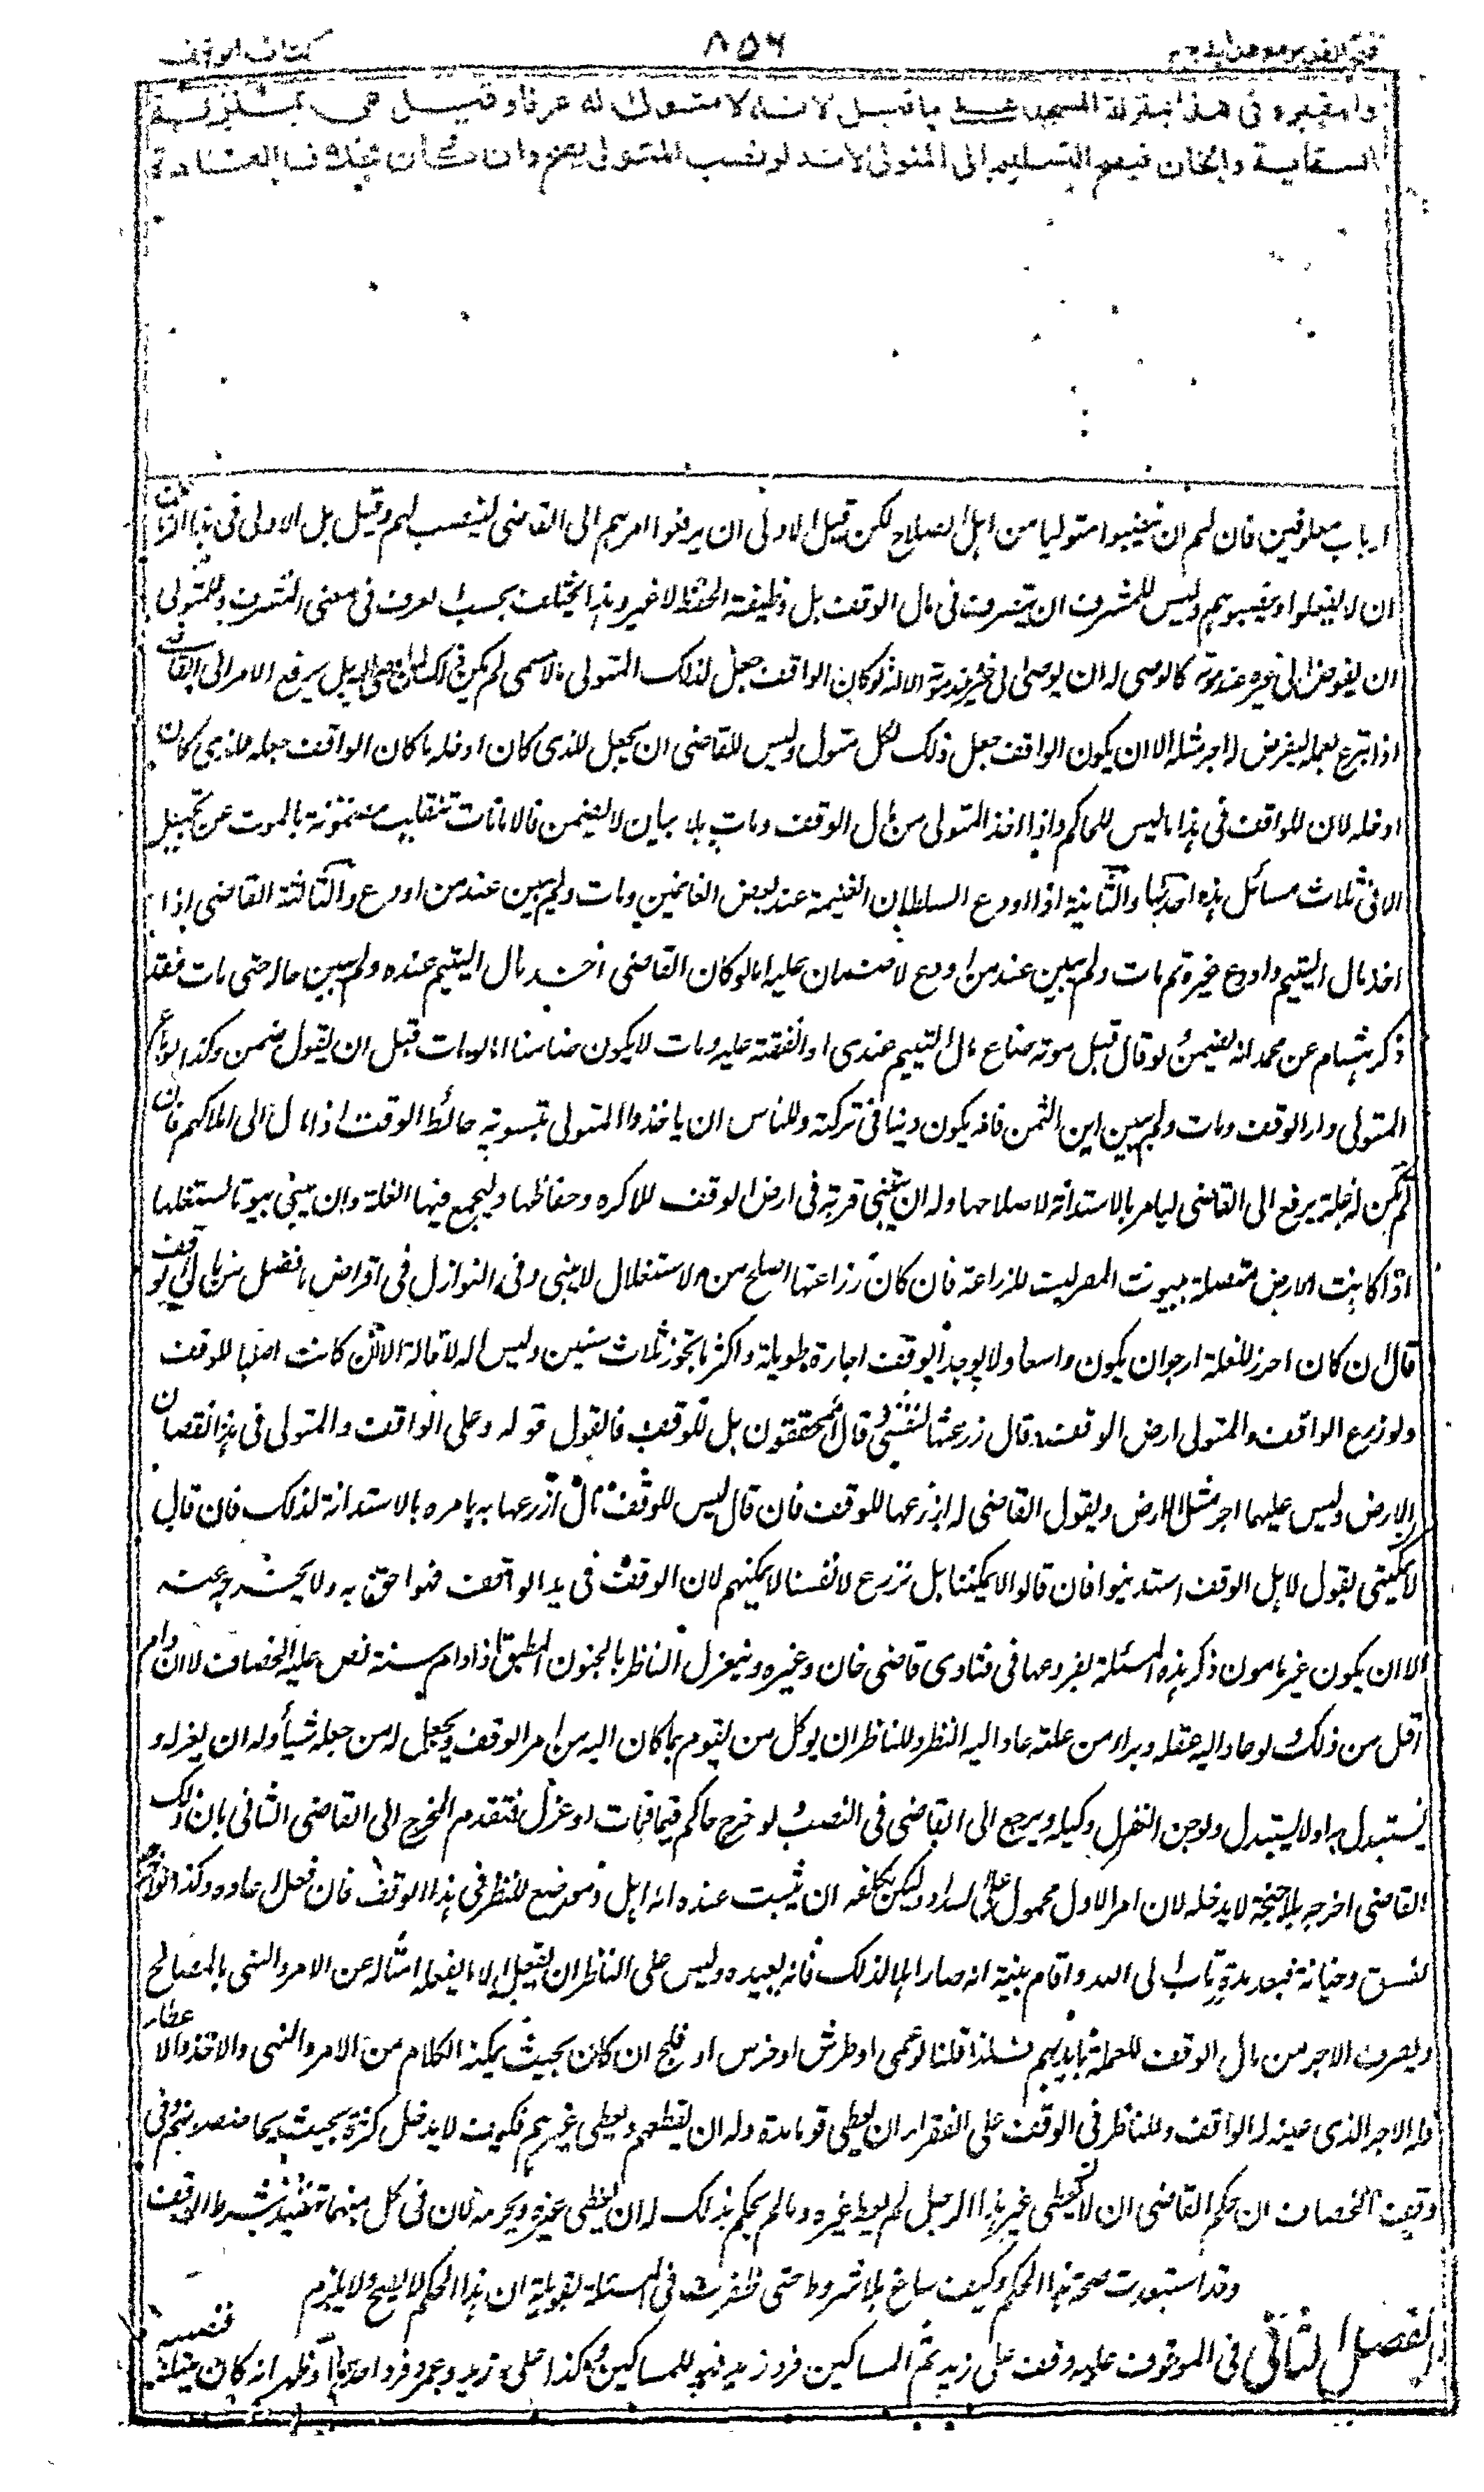 فتح القدير مع هداية ج ٢
٨٥٦
كتاب الوقف
والمقبرة في هذا بمنزلة المسجد على ما قيل لانه لا متولى له عرفا وقيل هي بمنزلة
السقاية والخان فيصح التسليم الى المتولى لانه لو نصب المتولى يصح وان كان بخلاف العادة
ارباب معلومين فان لهم ان ينصبوا متوليا من اهل الصلاح لكن قيل الاولى ان يرفعوا امرهم الى القاضى لينصب لهم وقيل بل الاولى فى هذا الزمان
ان لا يفعلوا وينصبوهم وليس للمشرف ان يتصرف فى مال الوقف بل وظيفته الحفظ لا غير وهذا يختلف بحسب العرف فى معنى المشرف وللمتولى
ان يفوض الى غيره عند موته كالوصى له ان يوصى الى غيره عند موته الا انه لو كان الواقف جعل لذلك المتولى مالا مسمى لم يكن ذلك لمن اوصى اليه بل يرفع الامر الى القاضى
اذا تبرع بعمله ليفرض له اجر مثله الا ان يكون الواقف جعل ذلك لكل متول وليس للقاضى ان يجعل للذى كان ادخله ما كان الواقف جعله للذى كان
ادخله لان للواقف فى هذا ما ليس للحاكم واذا اخذ المتولى من مال الوقف ومات بلا بيان لا يضمن فالامانات تنقلب مضمونة بالموت عن تجهيل
الا فى ثلاث مسائل هذه احدها والثانية اذا اودع السلطان الغنيمة عند بعض الغانمين ومات ولم يبين عند من اودع والثالثة القاضى اذا
اخذ مال اليتيم واودع غيره ثم مات ولم يبين عند من اودع لا ضمان عليه اما لو كان القاضى اخذ مال اليتيم عنده ولم يبين حاله حتى مات فقد
ذكر هشام عن محمد انه يضمن ولو قال قبل موته ضاع مال اليتيم عندى او انفقته عليه ومات لا يكون ضامنا اما لو مات قبل ان يقول ضمن وكذا لو باع
المتولى دار الوقف ومات ولم يبين اين الثمن فانه يكون دينا فى تركته وللناس ان ياخذوا المتولى بتسوية حائط الوقف اذا مال الى املاكهم فان
لم يكن له غلة يرفع الى القاضى ليامر بالاستدانة لاصلاحها وله ان يبنى قرية فى ارض الوقف للاكرة وحفاظها وليجمع فيها الغلة وان يبنى بيوتا لستغلها
اذا كانت الارض متصلة ببيوت المصر ليست للزراعة فان كان زراعتها اصلح من الاستغلال لا يبنى وفى النوازل فى اقراض ما فضل من مال الوقف
قال ان كان احرز للغلة ارجو ان يكون واسعا ولا يوجد الوقف اجارة طويلة واكثر ما تجوز ثلاث سنين وليس له الاقالة الا ان كانت اصلح للوقف
ولو زرع الواقف والمتولى ارض الوقف وقال زرعتها لنفسى وقال المحققون بل للوقف فالقول قوله وعلى الواقف والمتولى فى هذا نقصان
الارض وليس عليهما اجر مثل الارض ويقول القاضى له ازرعها للوقف فان قال ليس للوقف مال ازرعها به يامره بالاستدانة لذلك فان قال
لا يمكننى يقول لاهل الوقف استدينوا فان قالوا لا يمكننا بل نزرع لانفسنا لا يمكنهم لان الوقف فى يد الواقف فهو احق به ولا يخرج عنه
الا ان يكون غير مامون ذكر هذه المسئلة بفروعها فى فتاوى قاضى خان وغيره وينعزل الناظر بالجنون المطبق اذا دام سنة نص عليه الخصاف لا ان دام
اقل من ذلك ولو عاد اليه عقله وبرا من علته عاد اليه النظر وللناظر ان يوكل من يقوم بما كان اليه من امر الوقف ويجعل له من جعله شيأ وله ان يعزله و
يستبدل به او لا يستبدل ولو جن انعزل وكيله ويرجع الى القاضى فى النصب ولو خرج حاكم قيما فمات او عزل فتقدم المخرج الى القاضى الثانى بان ذلك
القاضى اخرجه بلا جنحة لا يدخله لان امر الاول محمول على السداد ولكن يكلفه ان يثبت عنده انه اهل وموضع للنظر فى هذا الوقف فان فعل اعاده وكذا لو اخرجه
لفسق وخيانة فبعد مدة تاب الى الله واقام بينة انه صار اهلا لذلك فانه يعيده وليس على الناظر ان يفعل الا ما يفعله امثاله من الامر والنهى بالمصالح
ويصرف الاجر من مال الوقف للعملة بايديهم فلذا قلنا لو عمى او طرش او خرس او فلج ان كان بحيث يمكنه الكلام من الامر والنهى والاخذ والاعطاء
فله الاجر الذى عينه له الواقف وللناظر فى الوقف على الفقراء ان يعطى قوما مدة وله ان يقطعهم ويعطى غيرهم
وقف الخصاف ان حكم القاضى ان لا يعطى غير هذا الرجل لم يعط غيره وما لم يحكم بذلك له ان يعطى غيره ويحرمه لان فى كل منهما تنفيذ شرط الواقف
وقد استبعدت صحة هذا الحكم وكيف ساغ بلا شرط حتى ظفرت فى المسئلة بقولة ان هذا الحكم لا يصح ولا يلزم
الفصل الثانى فى الموقوف عليه وقف على زيد ثم المساكين فرد زيد فهو للمساكين وكذا على زيد وعمرو فرد احدهما او ظهر انه كان ميتا